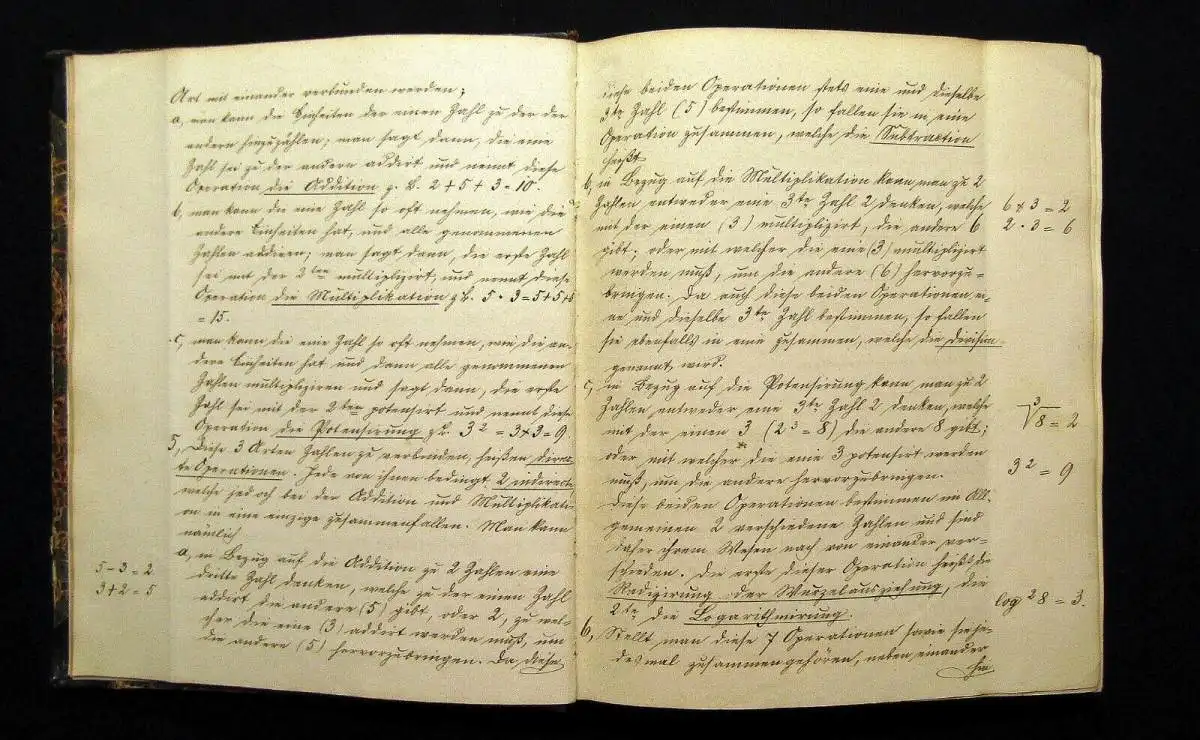 Art mit einander verbunden werden;
a, man kann die Einheiten der einen Zahl zu der der
andern hinzuzählen; man sagt dann, die eine
Zahl sei zu der andern addirt und nennt diese
Operation die Addition z. B. 2 + 5 + 3 = 10.
b, man kann die eine Zahl so oft nehmen, wie die
andere Einheiten hat, und alle genommenen
Zahlen addiren; man sagt dann, die erste Zahl
sei mit der 2ten multiplizirt, und nennt diese
Operation die Multiplikation z. B. 5 · 3 = 5 + 5 + 5
= 15.
c, man kann die eine Zahl so oft nehmen, wie die an-
dere Einheiten hat und dann alle genommenen
Zahlen multipliziren und sagt dann, die erste
Zahl sei mit der 2ten potenzirt und nennt diese
Operation die Potenzirung z. B. 3² = 3 × 3 = 9.
5, Diese 3 Arten Zahlen zu verbinden, heißen direc-
te Operationen. Jede von ihnen bedingt 2 indirecte
welche jedoch bei der Addition und Multiplikati-
on in eine einzige zusammenfallen. Man kann
nämlich
a, in Bezug auf die Addition zu 2 Zahlen eine
dritte Zahl denken, welche zu der einen Zahl
addirt die andere (5) gibt, oder 2, zu wel-
cher die eine (3) addirt werden muß, um
die andere (5) hervorzubringen. Da diese
5 - 3 = 2
3 + 2 = 5
diese beiden Operationen stets eine und dieselbe
3te Zahl (5) bestimmen, so fallen sie in eine
Operation zusammen, welche die Subtraction
heißt.
b, in Bezug auf die Multiplikation kann man zu 2
Zahlen entweder eine 3te Zahl 2 denken, welche
mit der einen (3) multiplizirt, die andere 6
gibt; oder mit welcher die eine (3) multiplizirt
werden muß, um die andere (6) hervorzu-
bringen. Da auch diese beiden Operationen ei-
ne und dieselbe 3te Zahl bestimmen, so fallen
sie ebenfalls in eine zusammen, welche die Division
genannt wird.
c, in Bezug auf die Potenzirung kann man zu 2
Zahlen entweder eine 3te Zahl 2 denken, welche
mit der einen 3 (2³ = 8) die andere 8 gibt;
oder mit welcher die eine 3 potenzirt werden
muß, um die andere hervorzubringen.
Diese beiden Operationen bestimmen im All-
gemeinen 2 verschiedene Zahlen und sind
daher ihrem Wesen nach von einander ver-
schieden. Die erste dieser Operation heißt die
Radizirung der Wurzelausziehung, die
2te die Logarithmirung.
6, Stellt man diese 7 Operationen sowie sie je-
desmal zusammen gehören, neben einander
6 ÷ 3 = 2
2 · 3 = 6
³√8 = 2
3² = 9
log ²8 = 3.